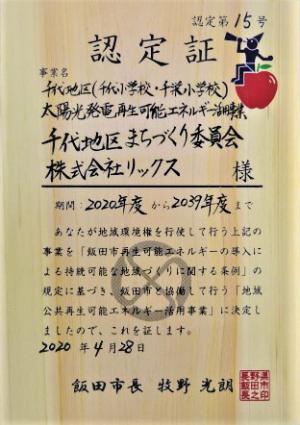 認定第15号
認定証
事業名
千代地区(千代小学校・千栄小学校)
太陽光発電再生可能エネルギー活用事業
千代地区まちづくり委員会
株式会社リックス 様
期間:2020年度から2039年度まで
あなたが地域環境権を行使して行う上記の
事業を「飯田市再生可能エネルギーの導入に
よる持続可能な地域づくりに関する条例」の
規定に基づき、飯田市と協働して行う「地域
公共再生可能エネルギー活用事業」に決定し
ましたので、これを証します。
2020年4月28日
飯田市長 牧野光朗
長野県飯田市長之印